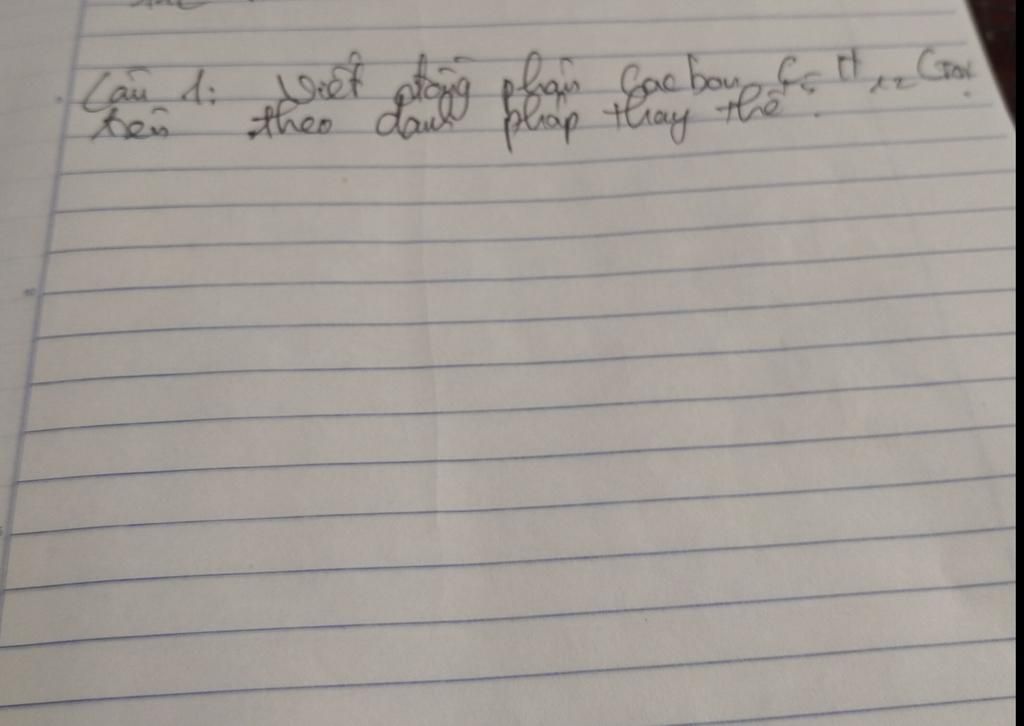 Câu 1: Viết đồng phân cacbon C5H12 Gọi
tên theo danh pháp thay thế.